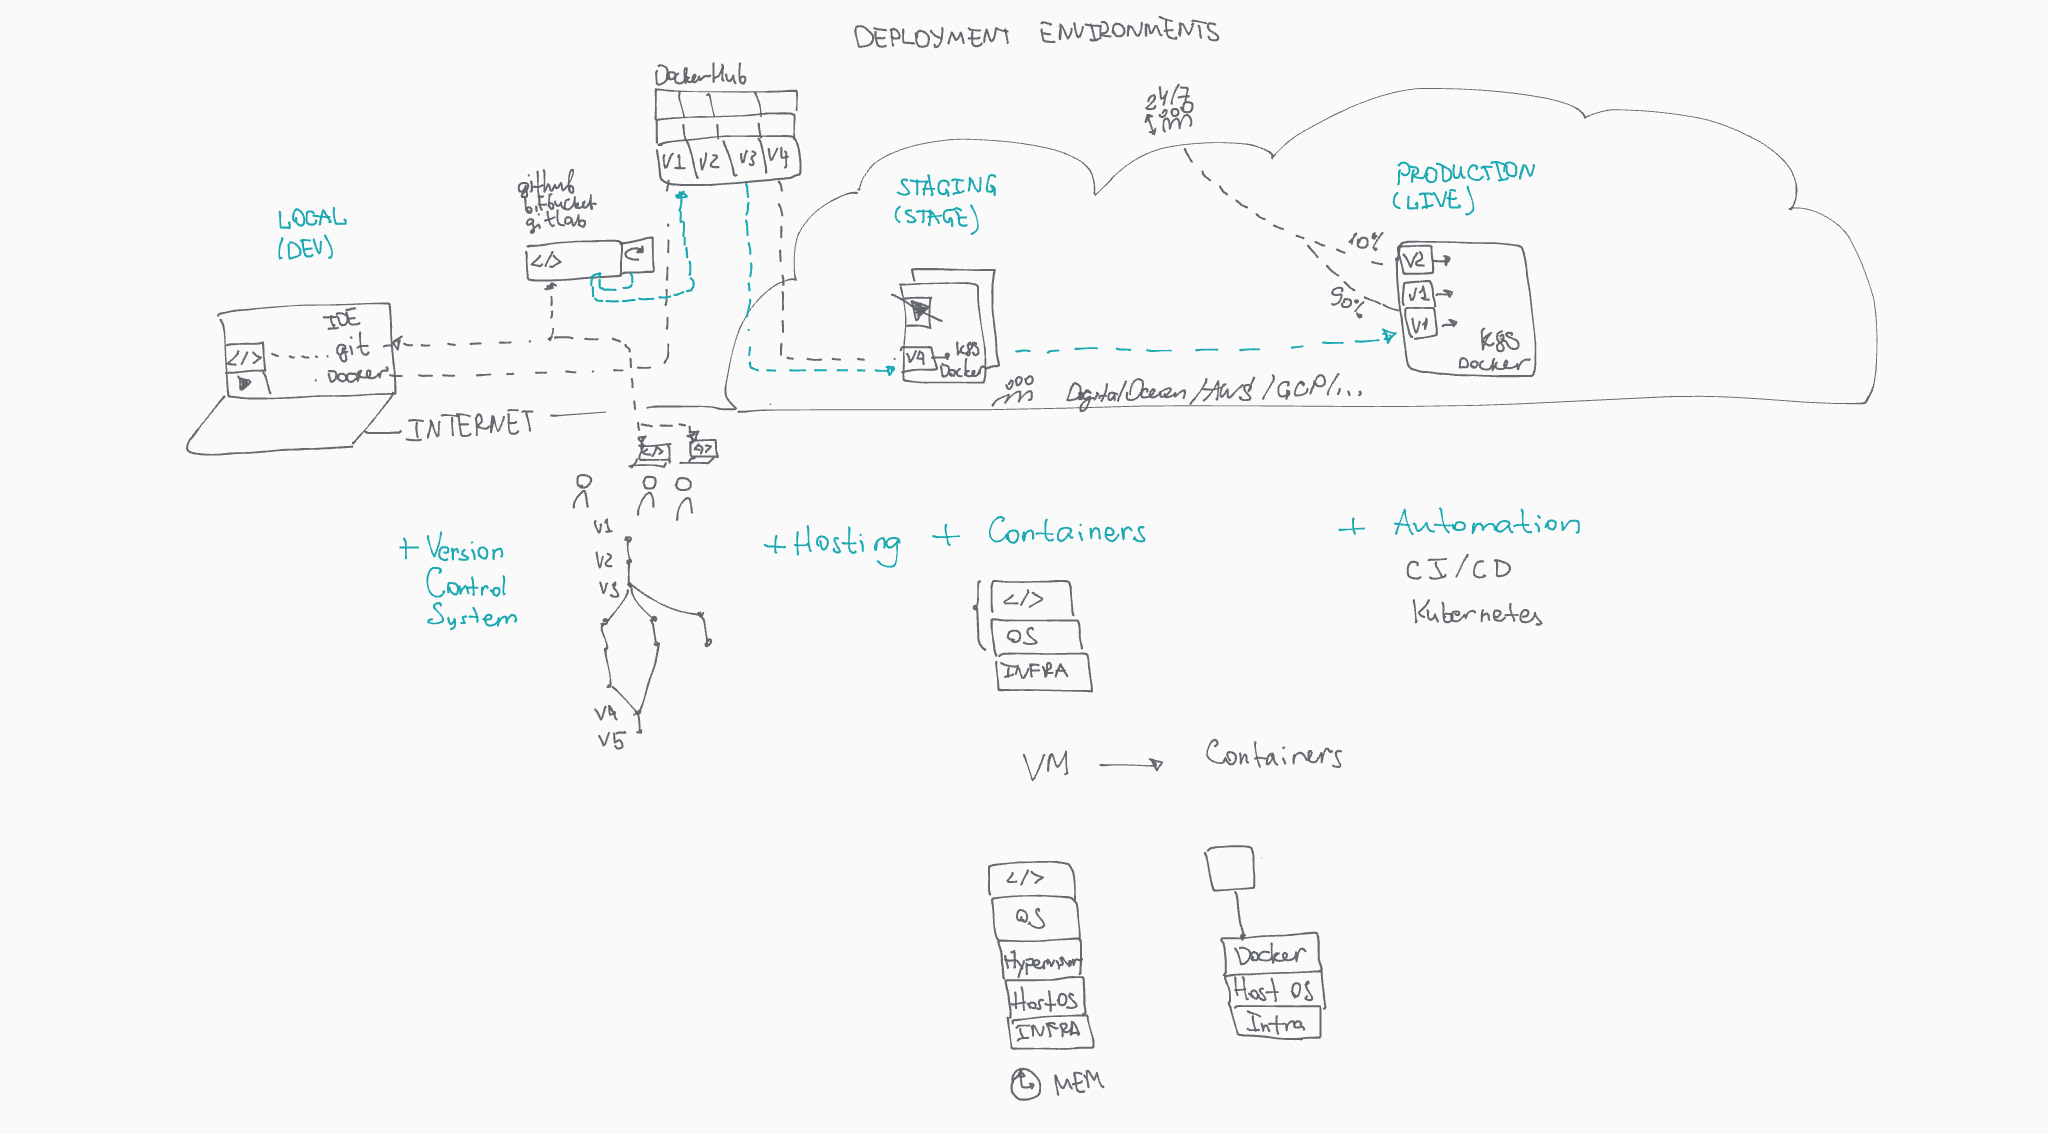 DEPLOYMENT ENVIRONMENTS
DockerHub
V1 V2 V3 V4
github
bitbucket
gitlab
</>
LOCAL
(DEV)
IDE
git
</>
Docker
INTERNET
</>
</>
24/7
STAGING
(STAGE)
V4
k8s
Docker
PRODUCTION
(LIVE)
10%
90%
V2
V1
V1
k8s
Docker
DigitalOcean/AWS/GCP/...
+ Version
Control
System
V1
V2
V3
V4
V5
+ Hosting
+ Containers
</>
OS
INFRA
+ Automation
CI/CD
Kubernetes
VM
Containers
</>
OS
Hypervisor
Host OS
INFRA
MEM
Docker
Host OS
Infra